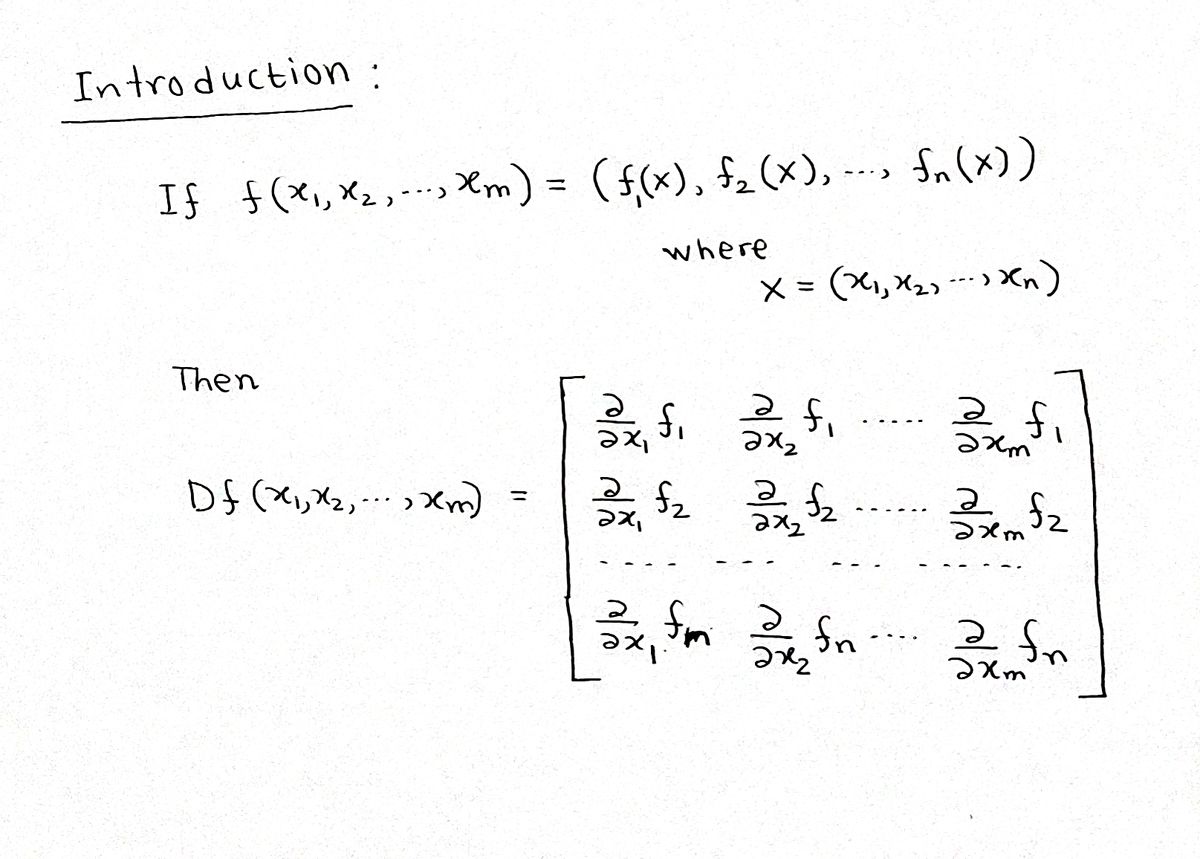 Introduction :
If f(x₁, x₂, ..., xₘ) = (f₁(x), f₂(x), ..., fₙ(x))
where
x = (x₁, x₂, ..., xₙ)
Then
Df(x₁, x₂, ..., xₘ) =
∂/∂x₁ f₁ ∂/∂x₂ f₁ ..... ∂/∂xₘ f₁
∂/∂x₁ f₂ ∂/∂x₂ f₂ ...... ∂/∂xₘ f₂
.... ... ... ......
∂/∂x₁ fₘ ∂/∂x₂ fₙ .... ∂/∂xₘ fₙ